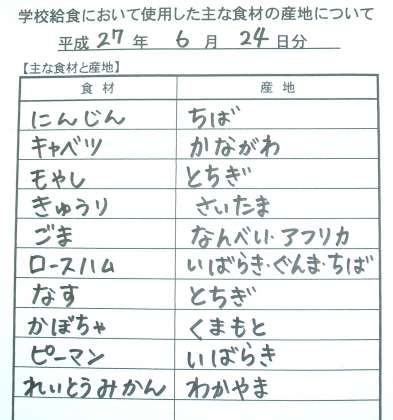 学校給食において使用した主な食材の産地について
平成 27 年 6 月 24 日分
【主な食材と産地】
食材 産地
にんじん ちば
キャベツ かながわ
もやし とちぎ
きゅうり さいたま
ごま なんべい・アフリカ
ロースハム いばらき・ぐんま・ちば
なす とちぎ
かぼちゃ くまもと
ピーマン いばらき
れいとうみかん わかやま